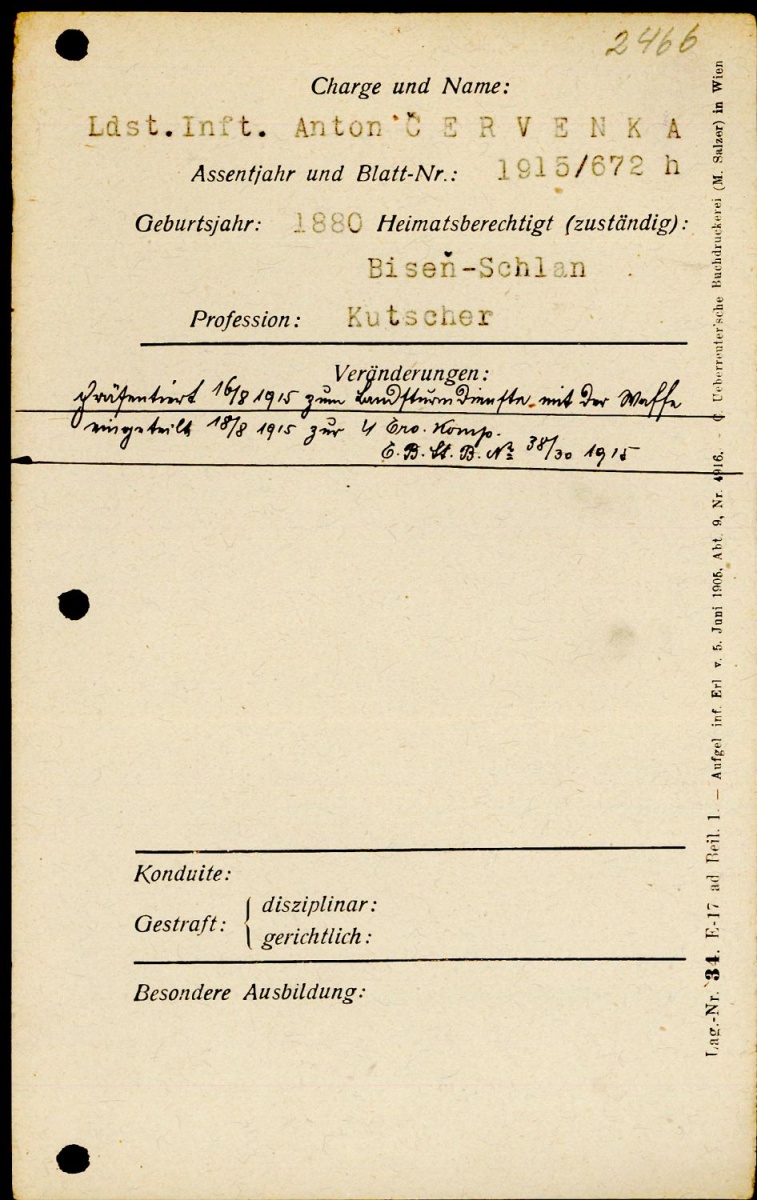 2466
Charge und Name:
Ldst.Inft. Anton ČERVENKA
Assentjahr und Blatt-Nr.: 1915/672 h
Geburtsjahr: 1880 Heimatsberechtigt (zuständig):
Biseň-Schlan
Profession: Kutscher
Veränderungen:
Präsentiert 16/8 1915 zum Landsturmdienste mit der Waffe
eingeteilt 18/8 1915 zur 4 Ers. Komp.
E. B. St. B. № 38/30 1915
Konduite:
Gestraft: { disziplinar:
gerichtlich:
Besondere Ausbildung:
Lag.-Nr. 34. E-17 ad Beil. 1. — Aufgel inf. Erl v. 5. Juni 1905, Abt. 9, Nr. 4916. — C. Ueberreuter'sche Buchdruckerei (M. Salzer) in Wien